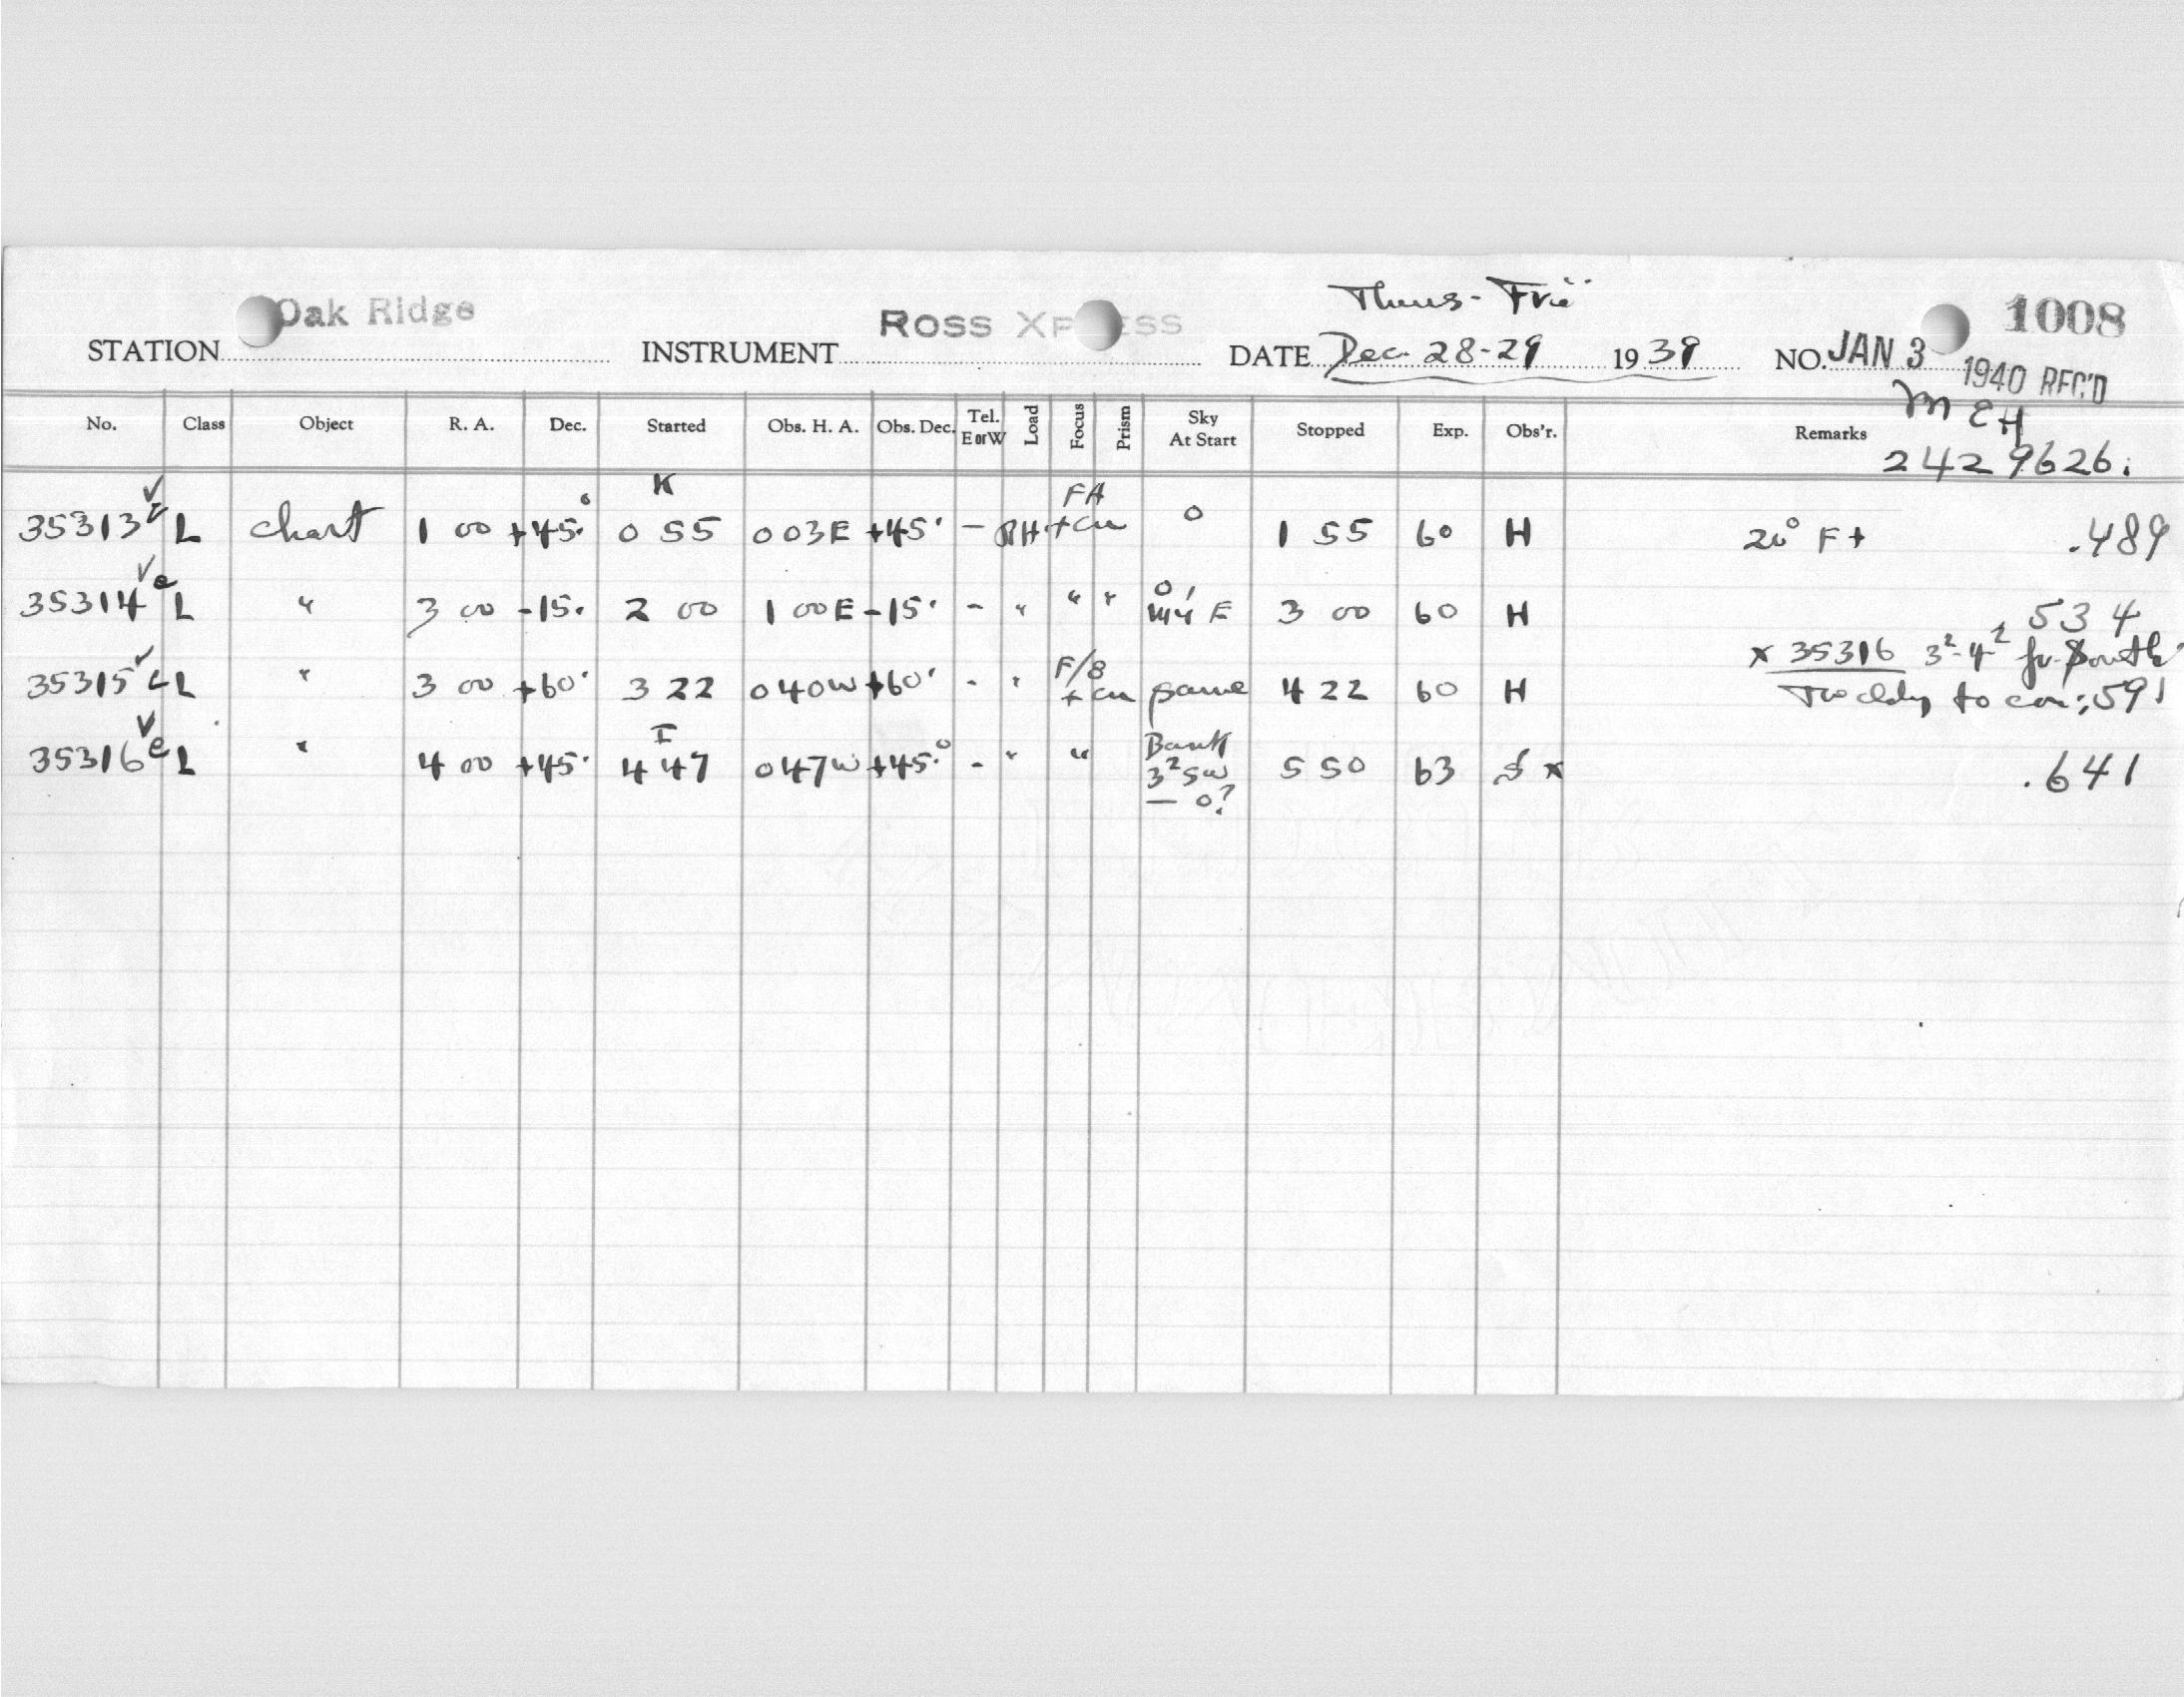 Thurs-Fri
Oak Ridge Ross Xp ess 1008
STATION INSTRUMENT DATE Dec. 28-29 1939 NO. JAN 3
1940 REC'D
MEH
No. Class Object R. A. Dec. Started Obs. H. A. Obs. Dec. Tel. E or W Load Focus Prism Sky At Start Stopped Exp. Obs'r. Remarks
2429626.
K FA
35313 L chart 1 00 +45° 0 55 0 03E +45° - RH + cu 0 1 55 60 H 20° F+ .489
35314 e L " 3 00 -15° 2 00 1 00E -15° - " " " 0, E 3 00 60 H 534
x 35316 3²-4²
35315 L " 3 00 +60° 3 22 0 40W +60° - " F/8 + cu same 4 22 60 H to .591
I
35316 e L " 4 00 +45° 4 47 0 47W +45° - " " Bank 3² SW — 0? 5 50 63 x .641